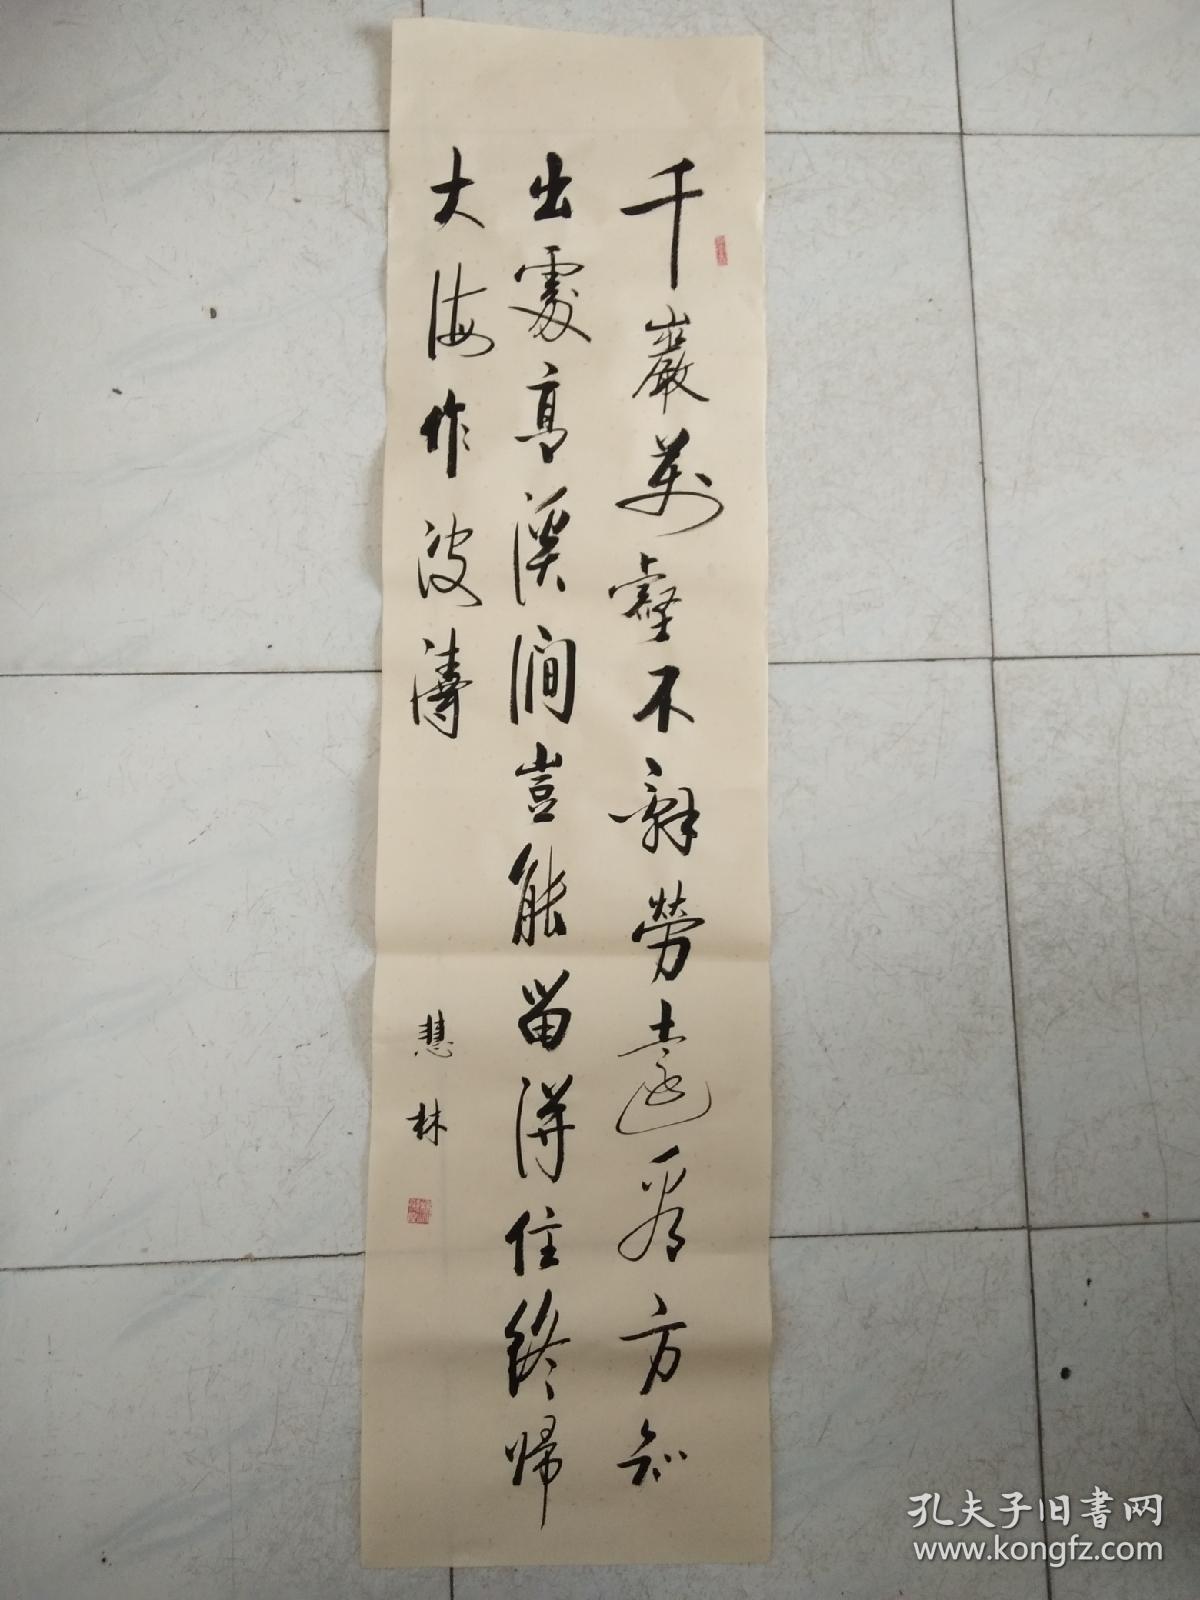 千巖萬壑不辭勞遠看方知
出處高溪澗豈能留得住終歸
大海作波濤
慧林
孔夫子旧书网
www.kongfz.com